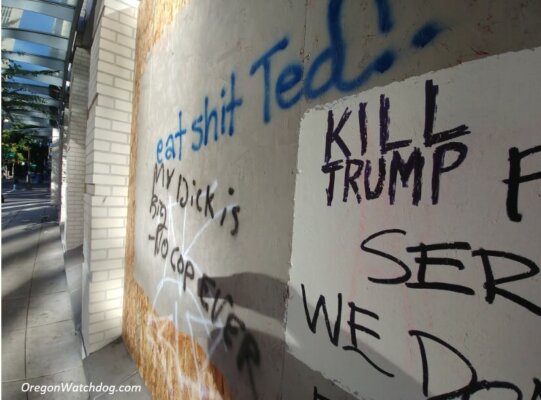 eat shit Ted..
MY Dick is
BIG
-NO COP EVER
KILL
TRUMP
F
SER
WE DO
OregonWatchdog.com